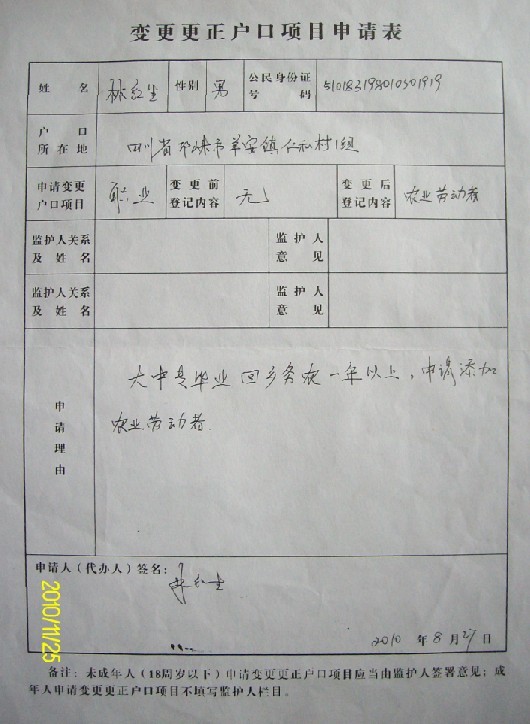 变更更正户口项目申请表
姓名 林红生 性别 男 公民身份证号码
户口所在地 四川省邛崃市羊安镇仁和村1组
申请变更户口项目 职业 变更前登记内容 无 变更后登记内容 农业劳动者
监护人关系及姓名 监护人意见
监护人关系及姓名 监护人意见
申请理由
大中专毕业回乡务农一年以上,申请添加
农业劳动者.
申请人(代办人)签名:
2010 年 8 月 27 日
2010/11/25
备注:未成年人(18周岁以下)申请变更更正户口项目应当由监护人签署意见;成
年人申请变更更正户口项目不填写监护人栏目。